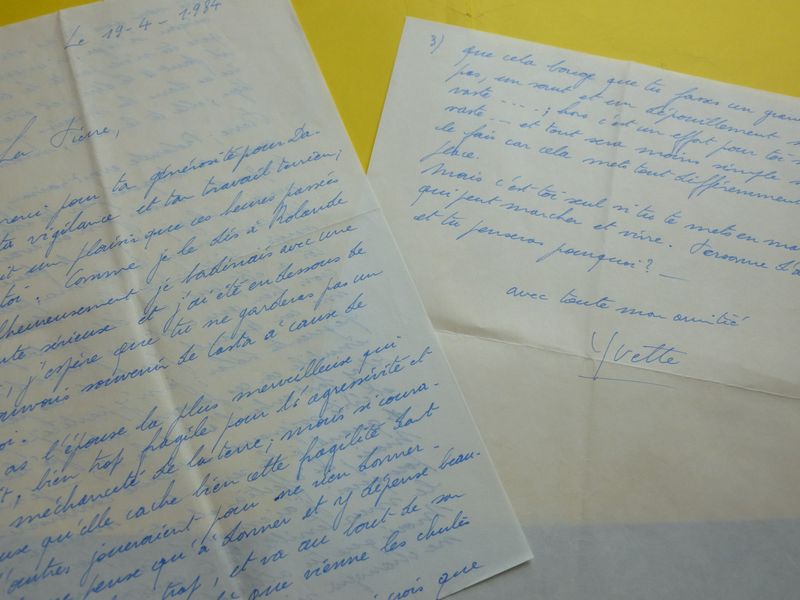 Le 19-4-1984
Pierre,
pour ta générosité pour Da-
ta vigilance et ton travail terrien;
un plaisir que ces heures passées
toi. Comme je le dis à Rolande
lheureusement je badinais avec une
sérieuse et j'ai été en dessous de
j'espère que tu ne garderas pas un
mauvais souvenir de Costa à cause de
oi.
as l'épouse la plus merveilleuse qui
bien trop fragile pour l'agressivité et
méchanceté de la terre; mais si coura-
use qu'elle cache bien cette fragilité dont
d'autres joueraient pour ne rien donner.
pense qu'à donner et y dépense beau-
trop, et va au bout de son
que vienne les chutes
crois que
3) que cela bouge que tu fasses un grand
pas, un saut et un dépouillement
vaste ....; lors c'est un effort pour toi
vaste .. et tout sera moins simple
le fais car cela mets tout différemment
place.
Mais c'est toi seul si tu te mets en ma
qui peut marcher et vivre. Personne
et tu penseras pourquoi? —
avec toute mon amitié
Yvette